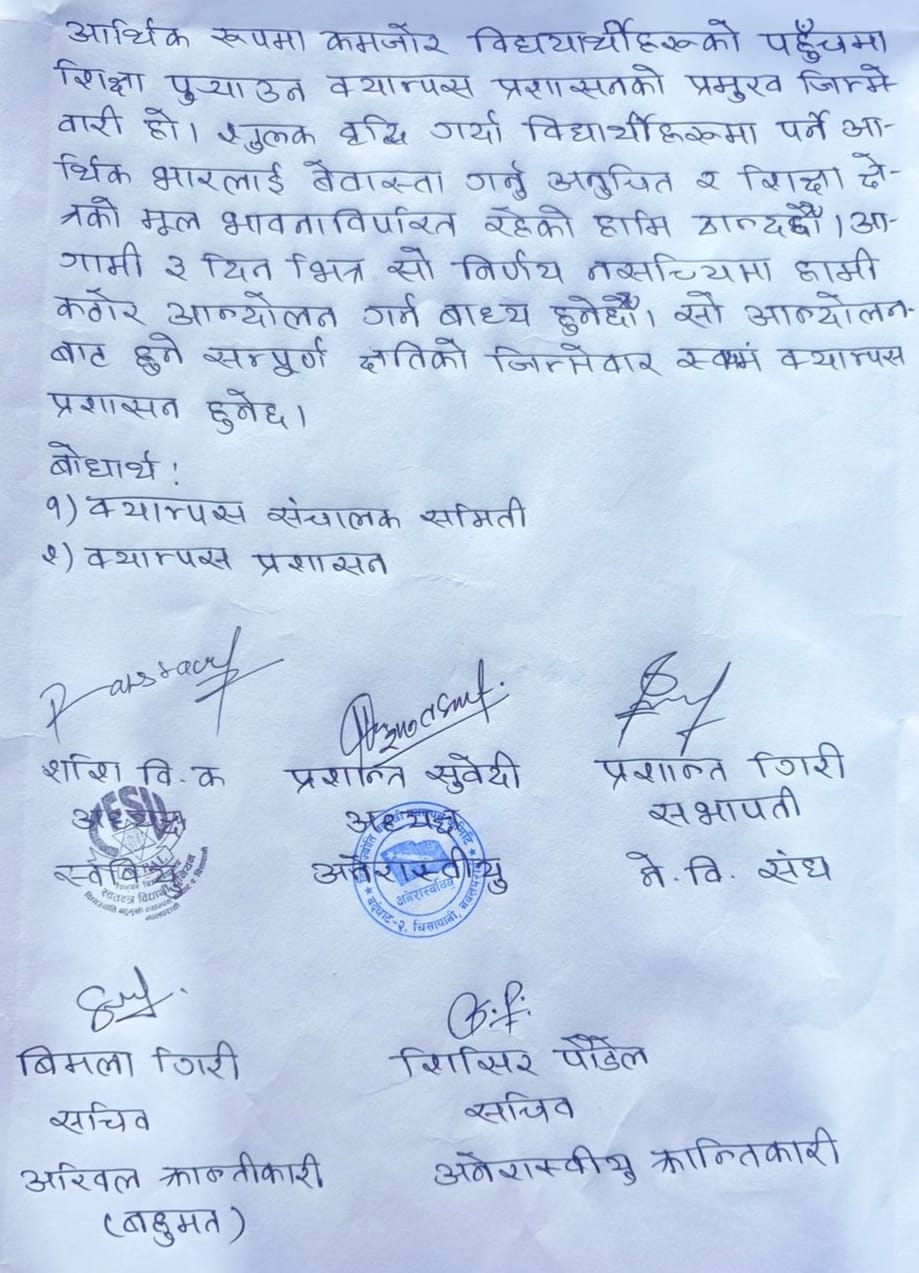 आर्थिक रूपमा कमजोर विद्ययार्थीहरूको पहुँचमा
शिक्षा पुर्‍याउन क्याम्पस प्रशासनको प्रमुख जिम्मे
वारी हो। शुलक वृद्धि गर्या विद्यार्थीहरूमा पर्ने आ-
र्थिक भारलाई बेवास्ता गर्नु अनुचित र शिक्षा क्षे-
त्रको मूल भावनाविर्परित रहेको हामि ठान्दछौं। आ-
गामी ३ दिन भित्र सो निर्णय नसच्चियमा हामी
कठोर आन्दोलन गर्न बाध्य हुनेछौं। सो आन्दोलन-
बाट हुने सम्पूर्ण क्षतिको जिम्मेवार स्वयमं क्याम्पस
प्रशासन हुनेछ।
बोधार्थ:
१) क्याम्पस संचालक समिती
२) क्याम्पस प्रशासन
शशि वि. क प्रशान्त सुवेदी प्रशान्त गिरी
अध्यक्ष अध्यक्ष सभापती
स्ववियु अनेरास्ववीयु ने. वि. संघ
अनेरास्ववियु
बर्दघाट-२, चिसापानी, नवलपरासी
बिमला गिरी शिसिर पौडेल
सचिव सचिव
अखिल क्रान्तीकारी अनेरास्ववीयु क्रान्तिकारी
(बहुमत)